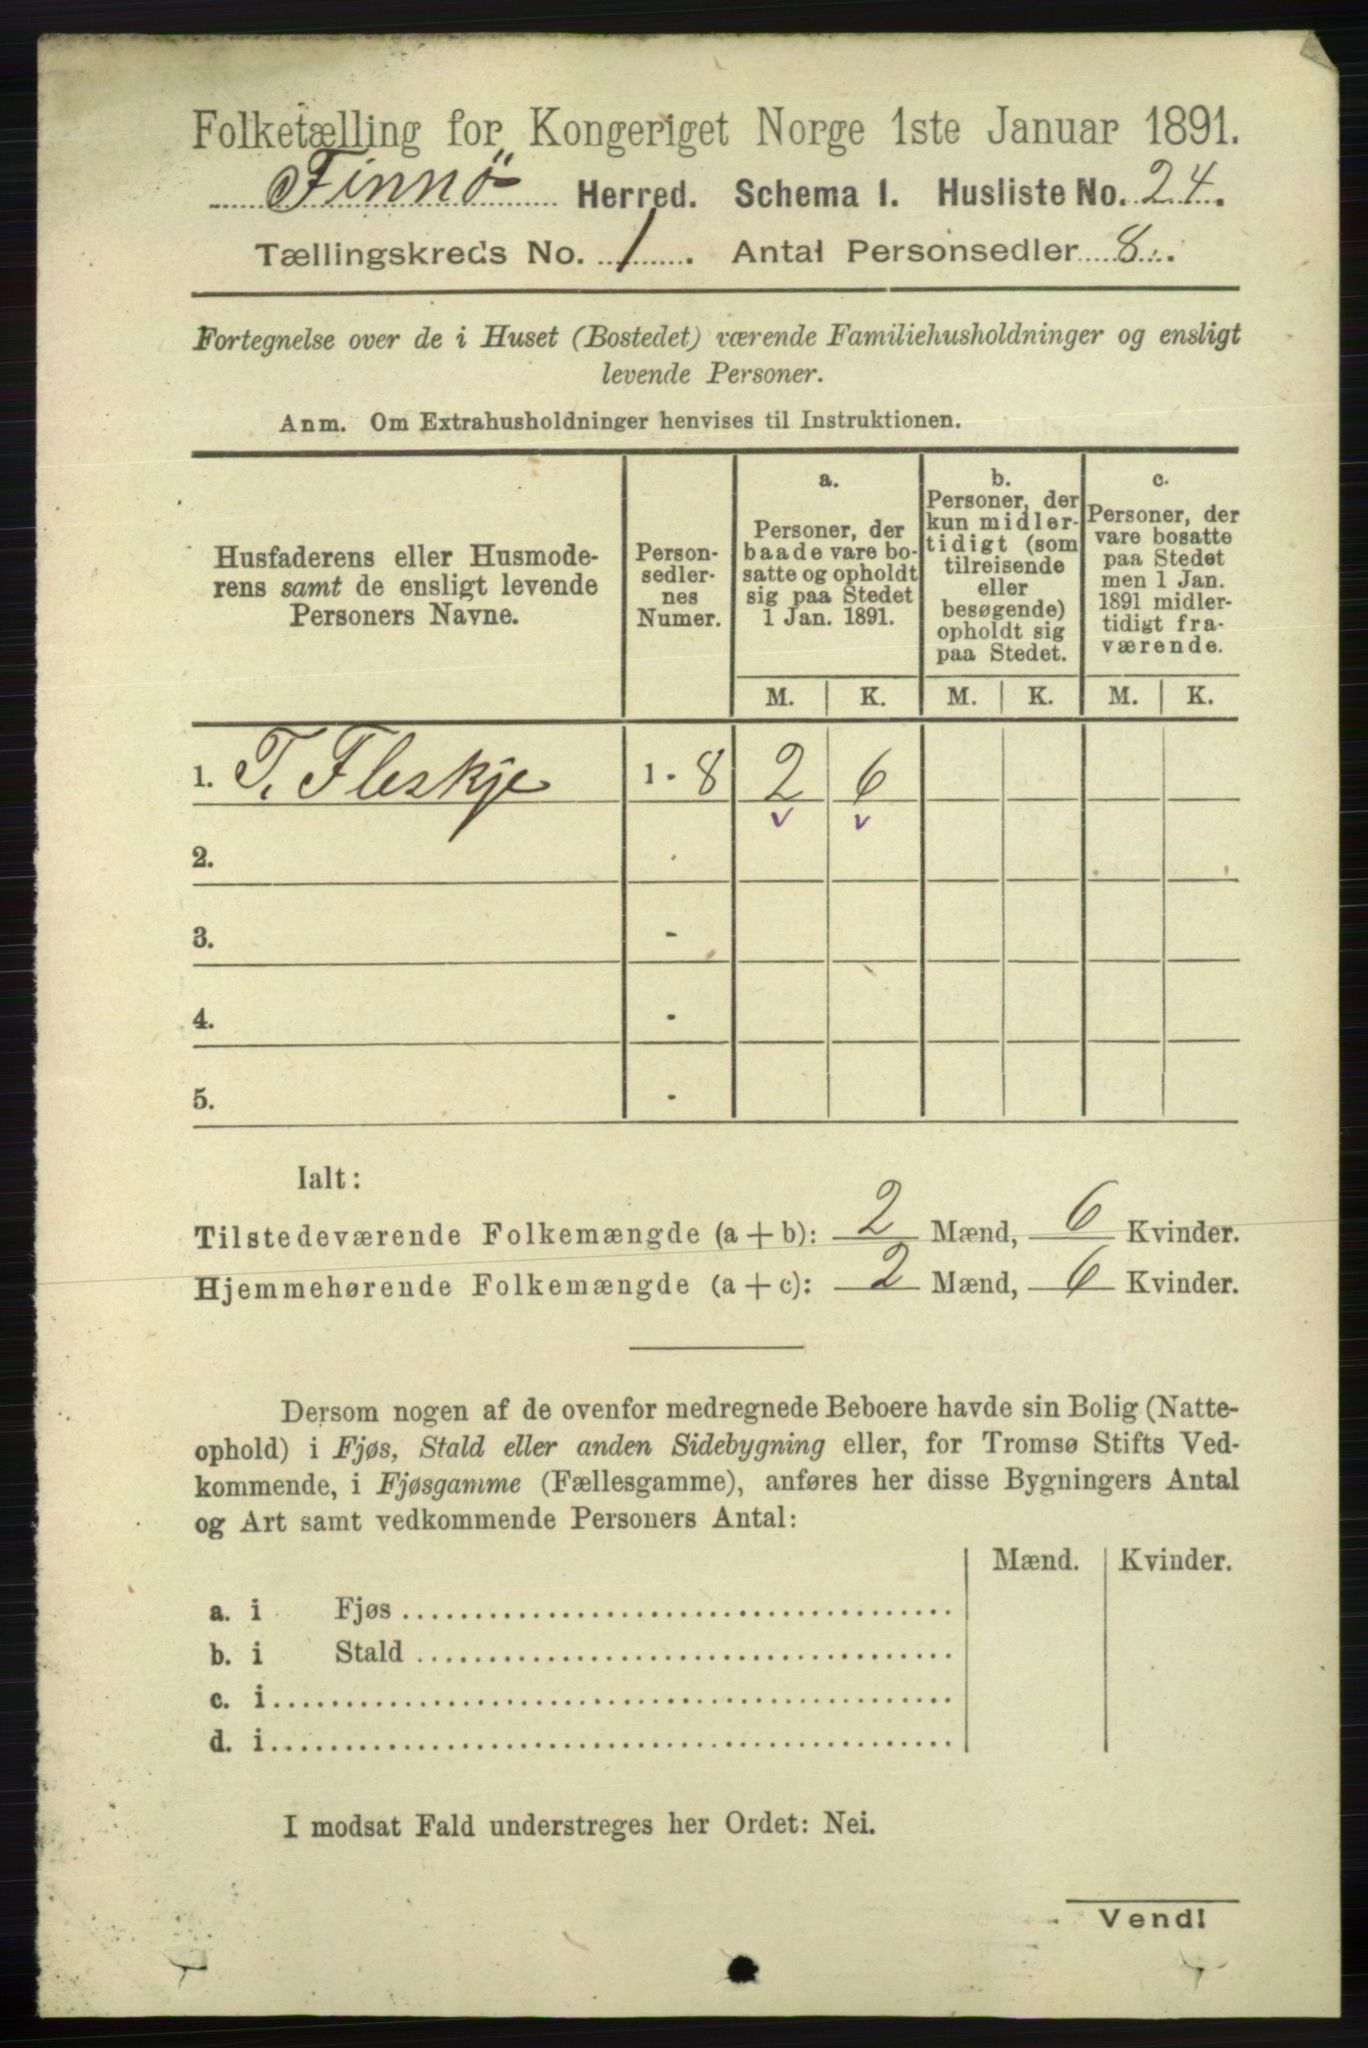 Folketælling for Kongeriget Norge 1ste Januar 1891.
Finnö Herred. Schema I. Husliste No. 24.
Tællingskreds No. 1. Antal Personsedler 8.
Fortegnelse over de i Huset (Bostedet) værende Familiehusholdninger og ensligt
levende Personer.
Anm. Om Extrahusholdninger henvises til Instruktionen.
Husfaderens eller Husmode-
rens samt de ensligt levende
Personers Navne.
Person-
sedler-
nes
Numer.
a.
Personer, der
baade vare bo-
satte og opholdt
sig paa Stedet
1 Jan. 1891.
b.
Personer, der
kun midler-
tidigt (som
tilreisende
eller
besøgende)
opholdt sig
paa Stedet.
c.
Personer, der
vare bosatte
paa Stedet
men 1 Jan.
1891 midler-
tidigt fra-
værende.
M. K. M. K. M. K.
1. T. Fleskje 1 - 8 2 6
v v
2.
3. -
4. -
5. -
Ialt:
Tilstedeværende Folkemængde (a + b): 2 Mænd, 6 Kvinder.
Hjemmehørende Folkemængde (a + c): 2 Mænd, 6 Kvinder.
Dersom nogen af de ovenfor medregnede Beboere havde sin Bolig (Natte-
ophold) i Fjøs, Stald eller anden Sidebygning eller, for Tromsø Stifts Ved-
kommende, i Fjøsgamme (Fællesgamme), anføres her disse Bygningers Antal
og Art samt vedkommende Personers Antal:
Mænd. Kvinder.
a. i Fjøs
b. i Stald
c. i
d. i
I modsat Fald understreges her Ordet: Nei.
Vend!